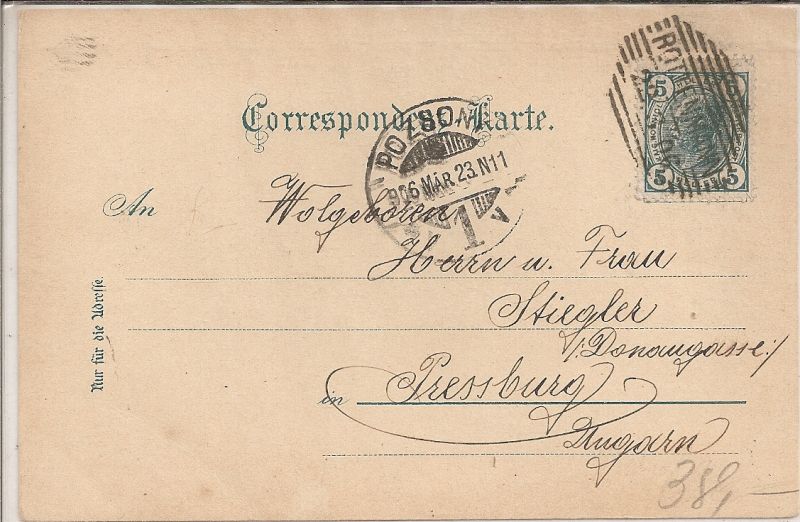 Correspondenz-Karte.
POZSONY
906 MÁR 23. N11
1
5 5
5 5
An Wolgeboren
Herrn u. Frau
Stiegler
/: Donaugasse :/
in Pressburg
Ungarn
Nur für die Adresse.
38,-